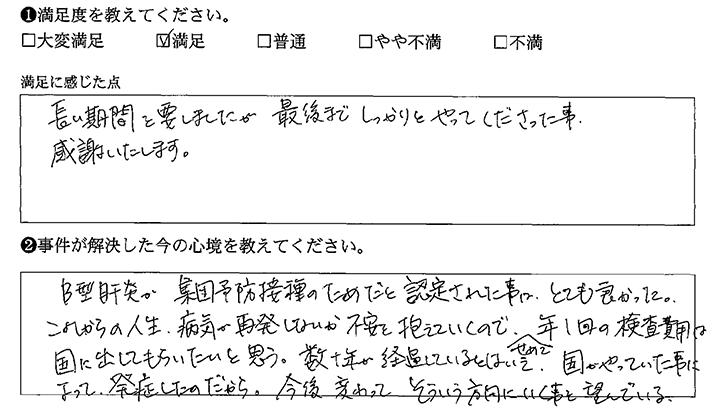 ❶満足度を教えてください。
□大変満足 ☑満足 □普通 □やや不満 □不満
満足に感じた点
長い期間を要しましたが 最後まで しっかりと やってくださった事.
感謝いたします。
❷事件が解決した今の心境を教えてください。
B型肝炎が 集団予防接種のためだと 認定された事は、とても良かった。
これからの人生、病気が再発しないか 不安を 抱えていくので、年1回の検査費用は
国に出してもらいたいと思う。数十年が 経過しているとはいえ、せめて 国がやっていた事に
よって、発症したのだから。今後 変わって そういう方向にいく事を 望んでいる。